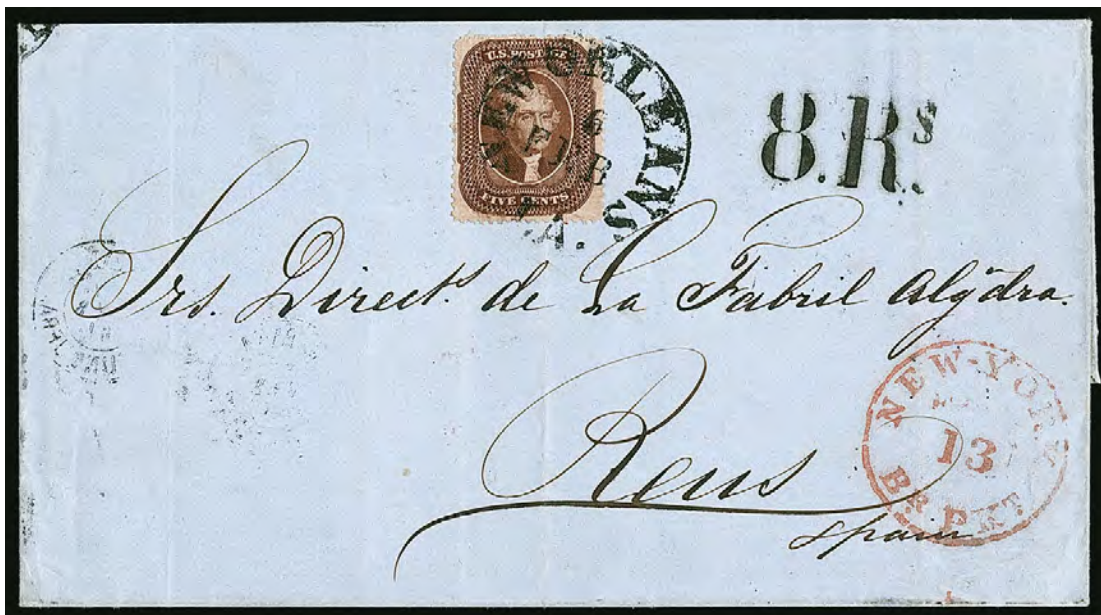 U.S. POSTAGE
FIVE CENTS
NEW ORLEANS
6
FEB
LA.
8.Rs.
Srs. Directs. de La Fabril Algdra.
Reus
Spain
NEW-YORK
13
BR. PKT.